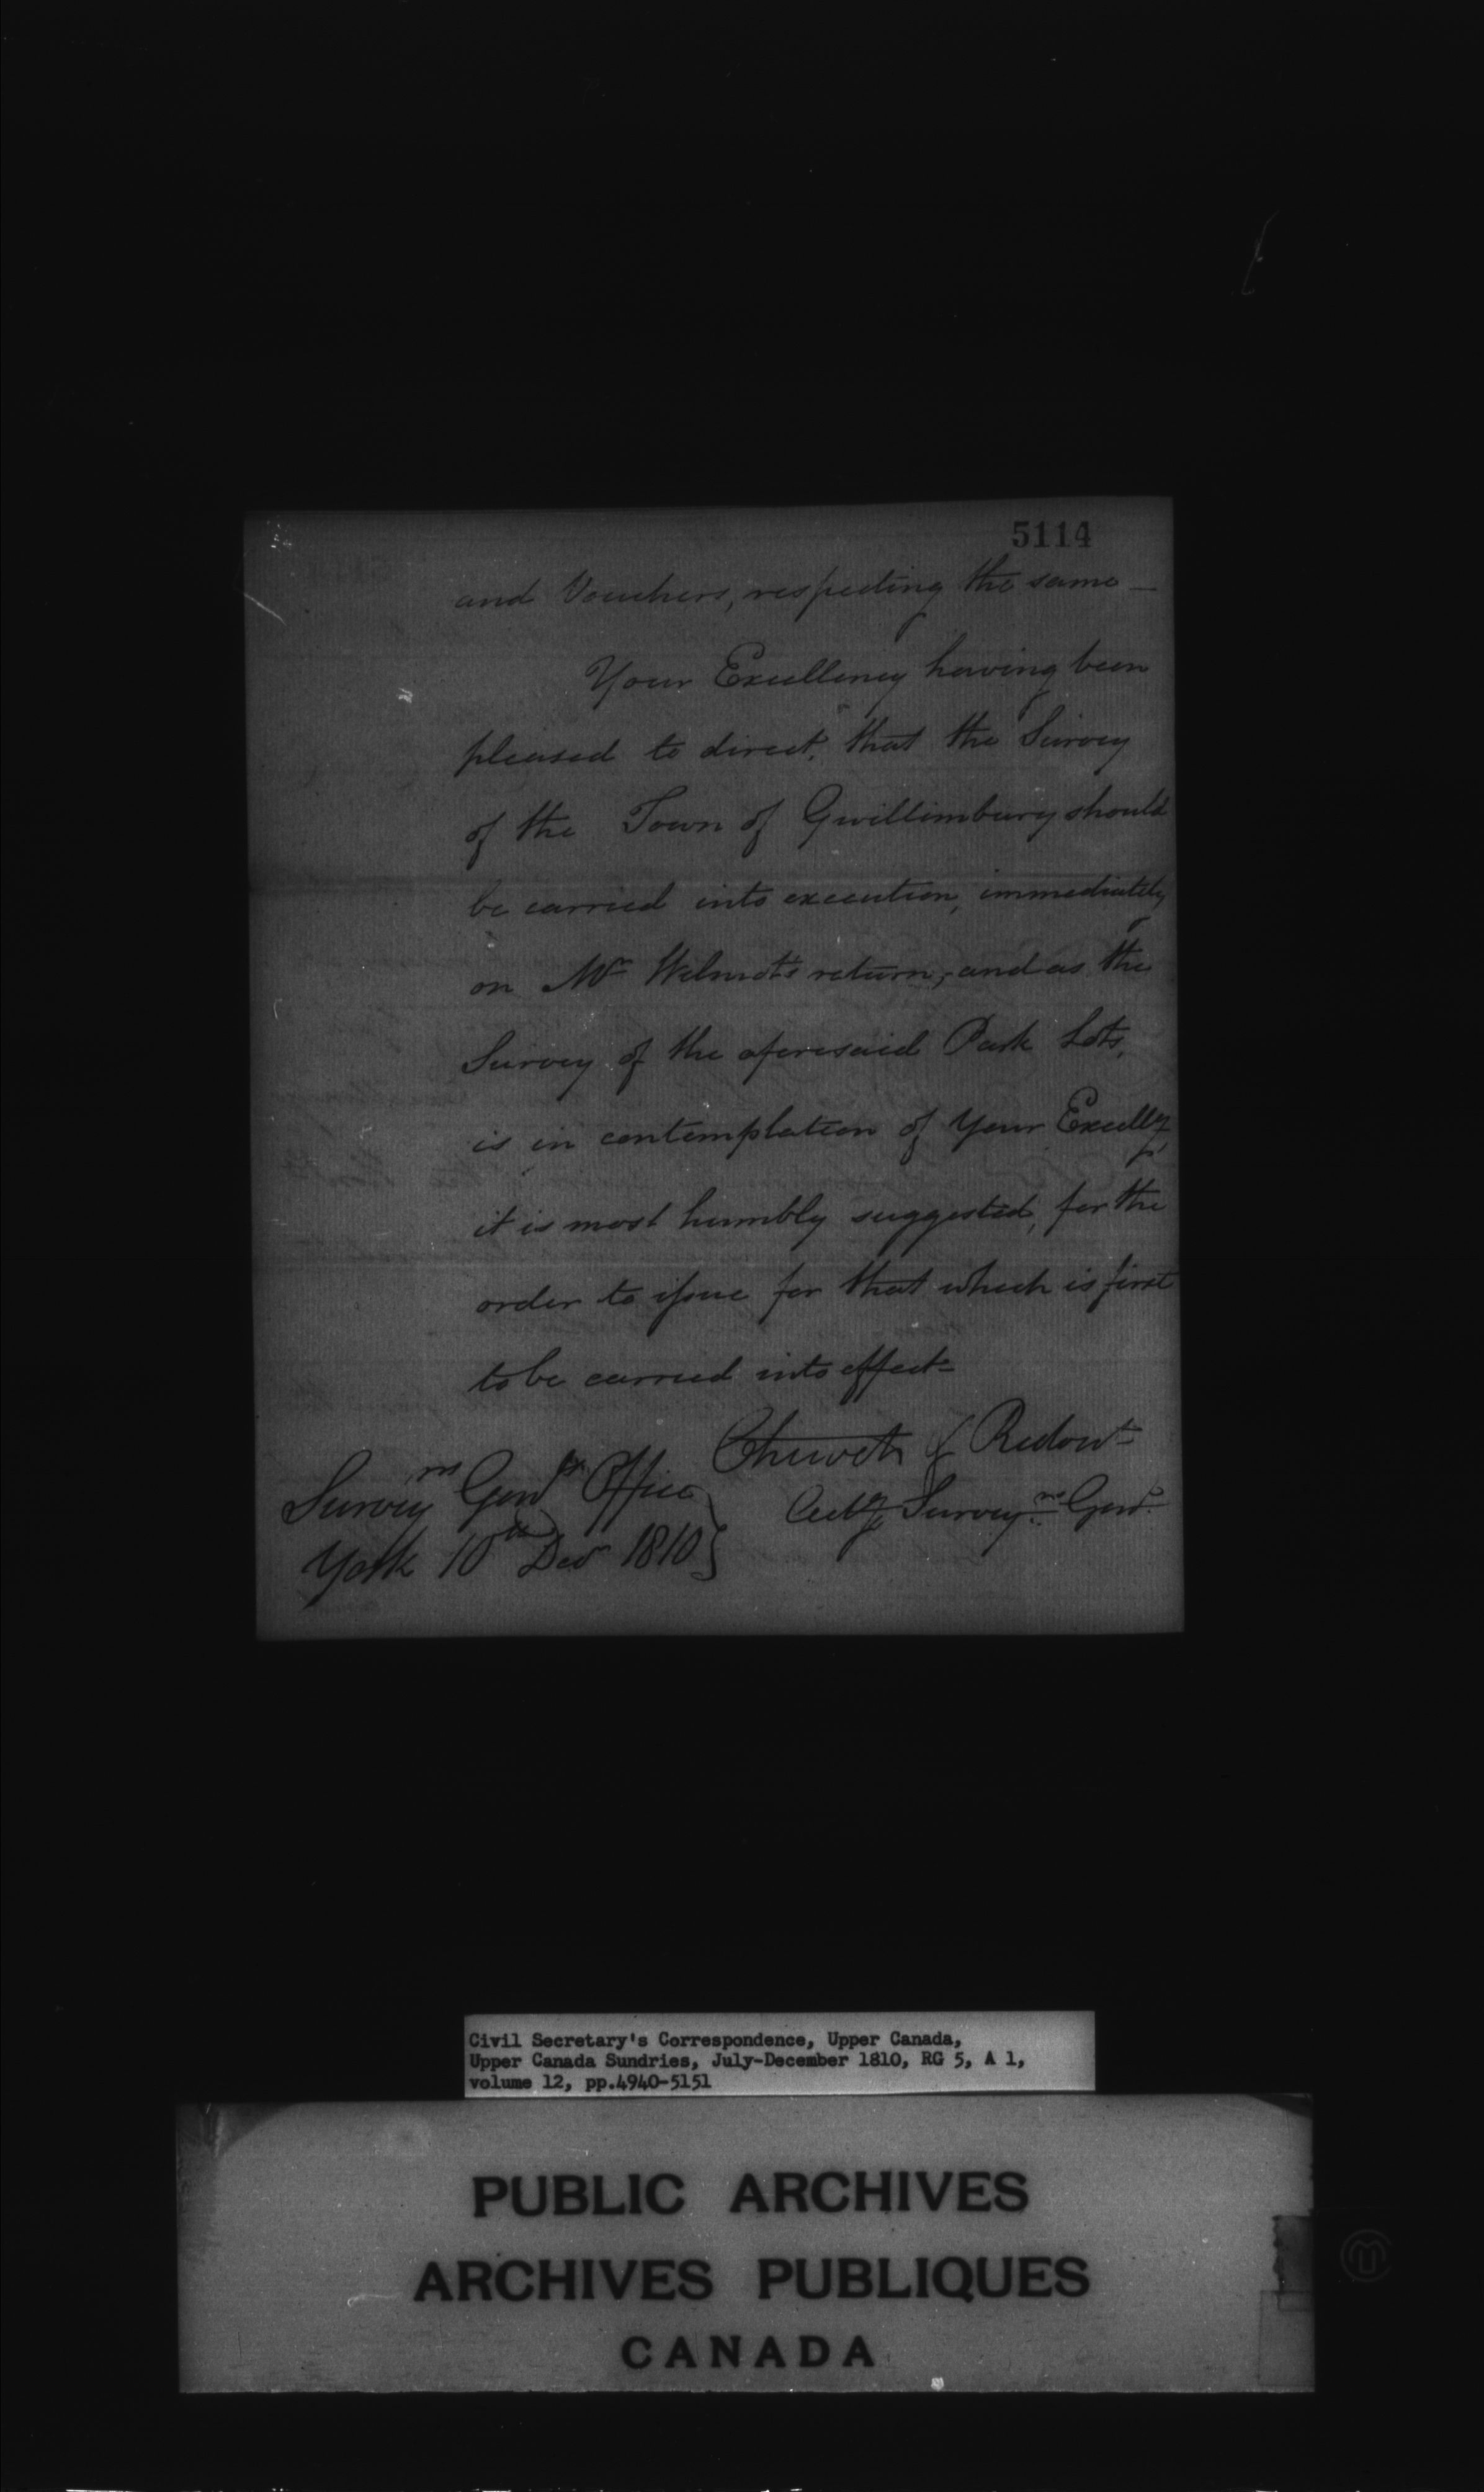 5114
and Vouchers, respecting the same —
Your Excellency having been
pleased to direct, that the Survey
of the Town of Gwillimbury should
be carried into execution, immediately
on Mr Wilmot's return, and as the
Survey of the aforesaid Park Lots,
is in contemplation of Your Excelly
it is most humbly suggested, for the
order to issue for that which is first
to be carried into effect
Chewett & Ridout
Actg Surveyrs Genl
Surveyrs Genls Office
York 10th Decr 1810
Civil Secretary's Correspondence, Upper Canada,
Upper Canada Sundries, July-December 1810, RG 5, A 1,
volume 12, pp.4940-5151
PUBLIC ARCHIVES
ARCHIVES PUBLIQUES
CANADA